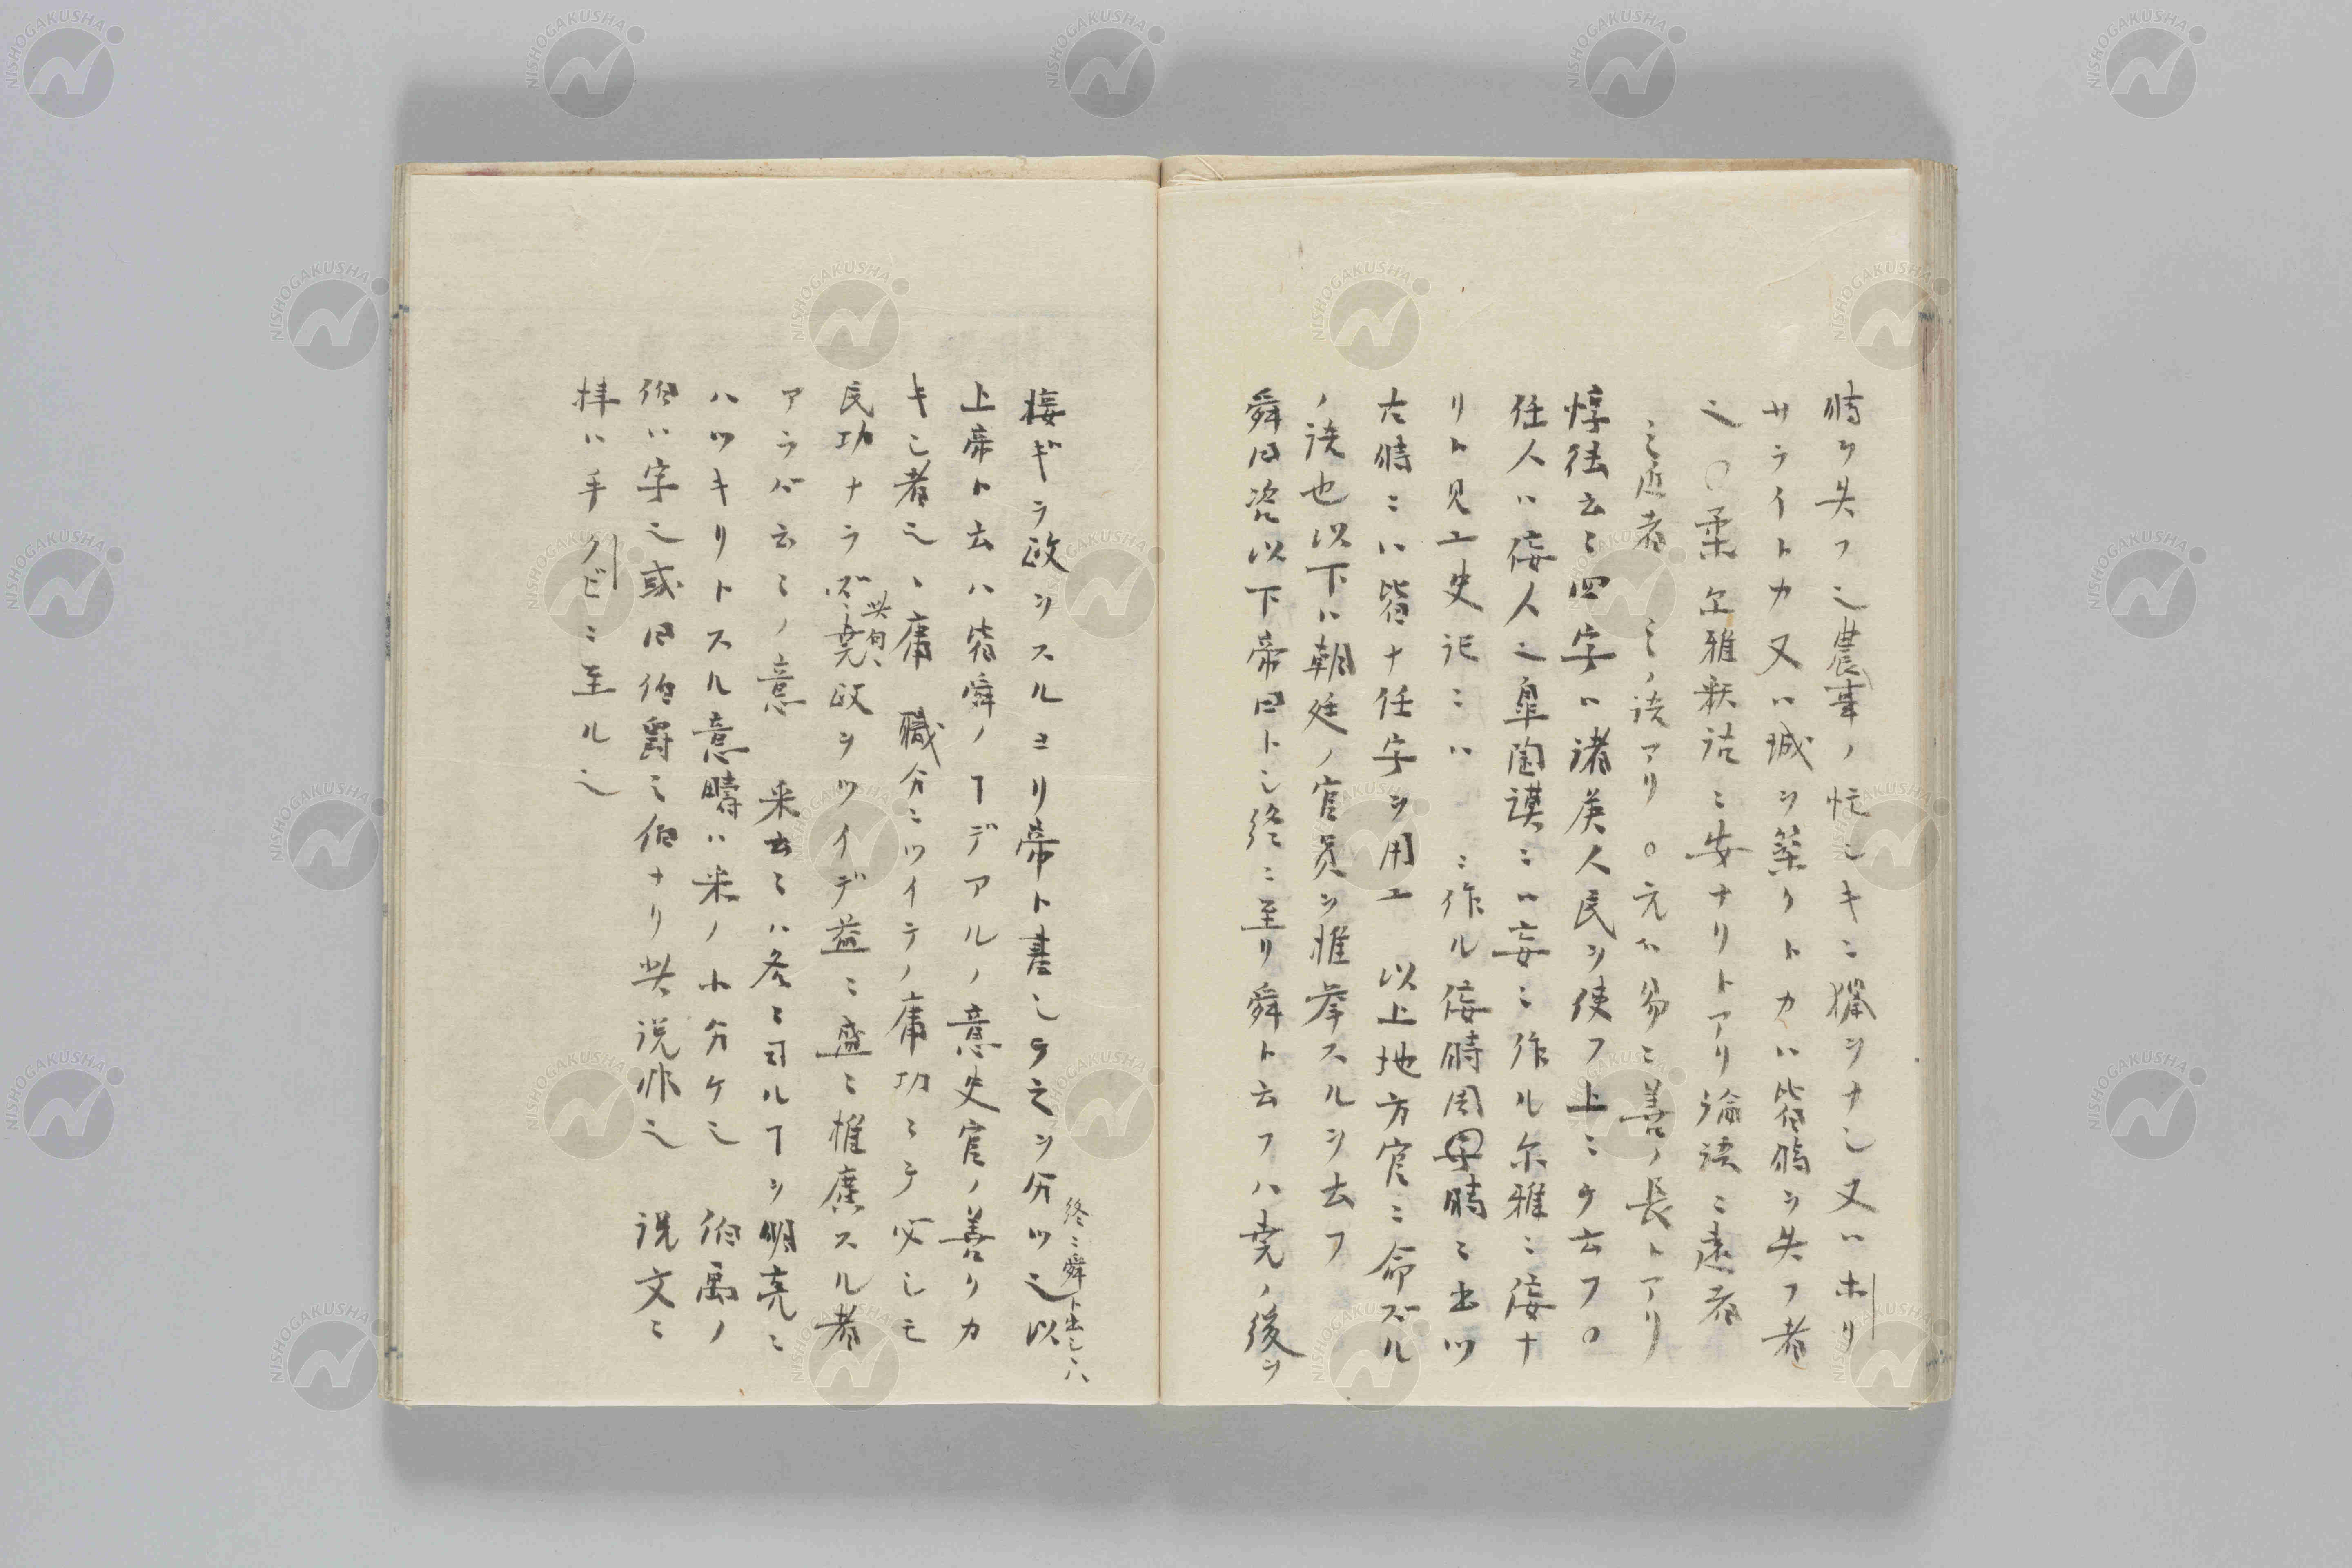 時ヲ失フ也農事ノ忙シキニ獵ヲナシ又ハホリ
サライトカ又ハ城ヲ築クトカハ皆時ヲ失フ者
也〇柔尓雅釈詁ニ安ナリトアリ論語ニ遠者
ミ近者ミノ語アリ〇元ハ易ニ善ノ長トアリ
惇徳云々四字ハ諸矦人民ヲ使フ上ニテ云フ〇
任人ハ侫人也皐陶謨ニハ妄ニ作ル尓雅ニ侫ナ
リト見エ史記ニハ ニ作ル侫時周 時ニ出ツ
古時ニハ皆ナ任字ヲ用エ 以上地方官ニ命ズル
ノ語也以下ハ朝廷ノ官員ヲ推挙スルヲ云フ
舜曰咨以下帝曰トシ終ニ至リ舜ト云フハ尭ノ後ヲ
接ギテ政ヲスルヨリ帝ト書シテ之ヲ分ツ也以
終ニ舜ト出シハ
上帝ト云ハ皆舜ノヿデアルノ意史官ノ善リカ
キシ者也、庸 職分ニツイテノ庸功ミテ必シモ
民功ナラズ、尭政ヲツイデ益々盛ニ推廣スル者
共旬、
アラバ云々ノ意 采云々ハ各々司ルヿヲ明亮ニ
ハツキリトスル意疇ハ采ノ小分ケ也 伯禹ノ
伯ハ字也或曰伯爵ミ伯ナリ此説非也 説文ニ
拝ハ手クビニ至ル也